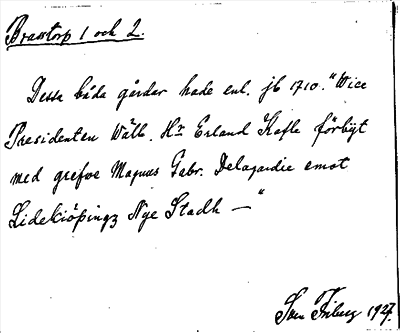 Brasstorp 1 och 2.
Dessa båda gårdar hade enl. jb 1710. "Wice
Presidenten Wälb. Hr Erland Kafle förbÿt
med grefve Magnus Gabr. Delagardie emot
Lidekiöpingz Nye Stadh — "
Friberg 1927.